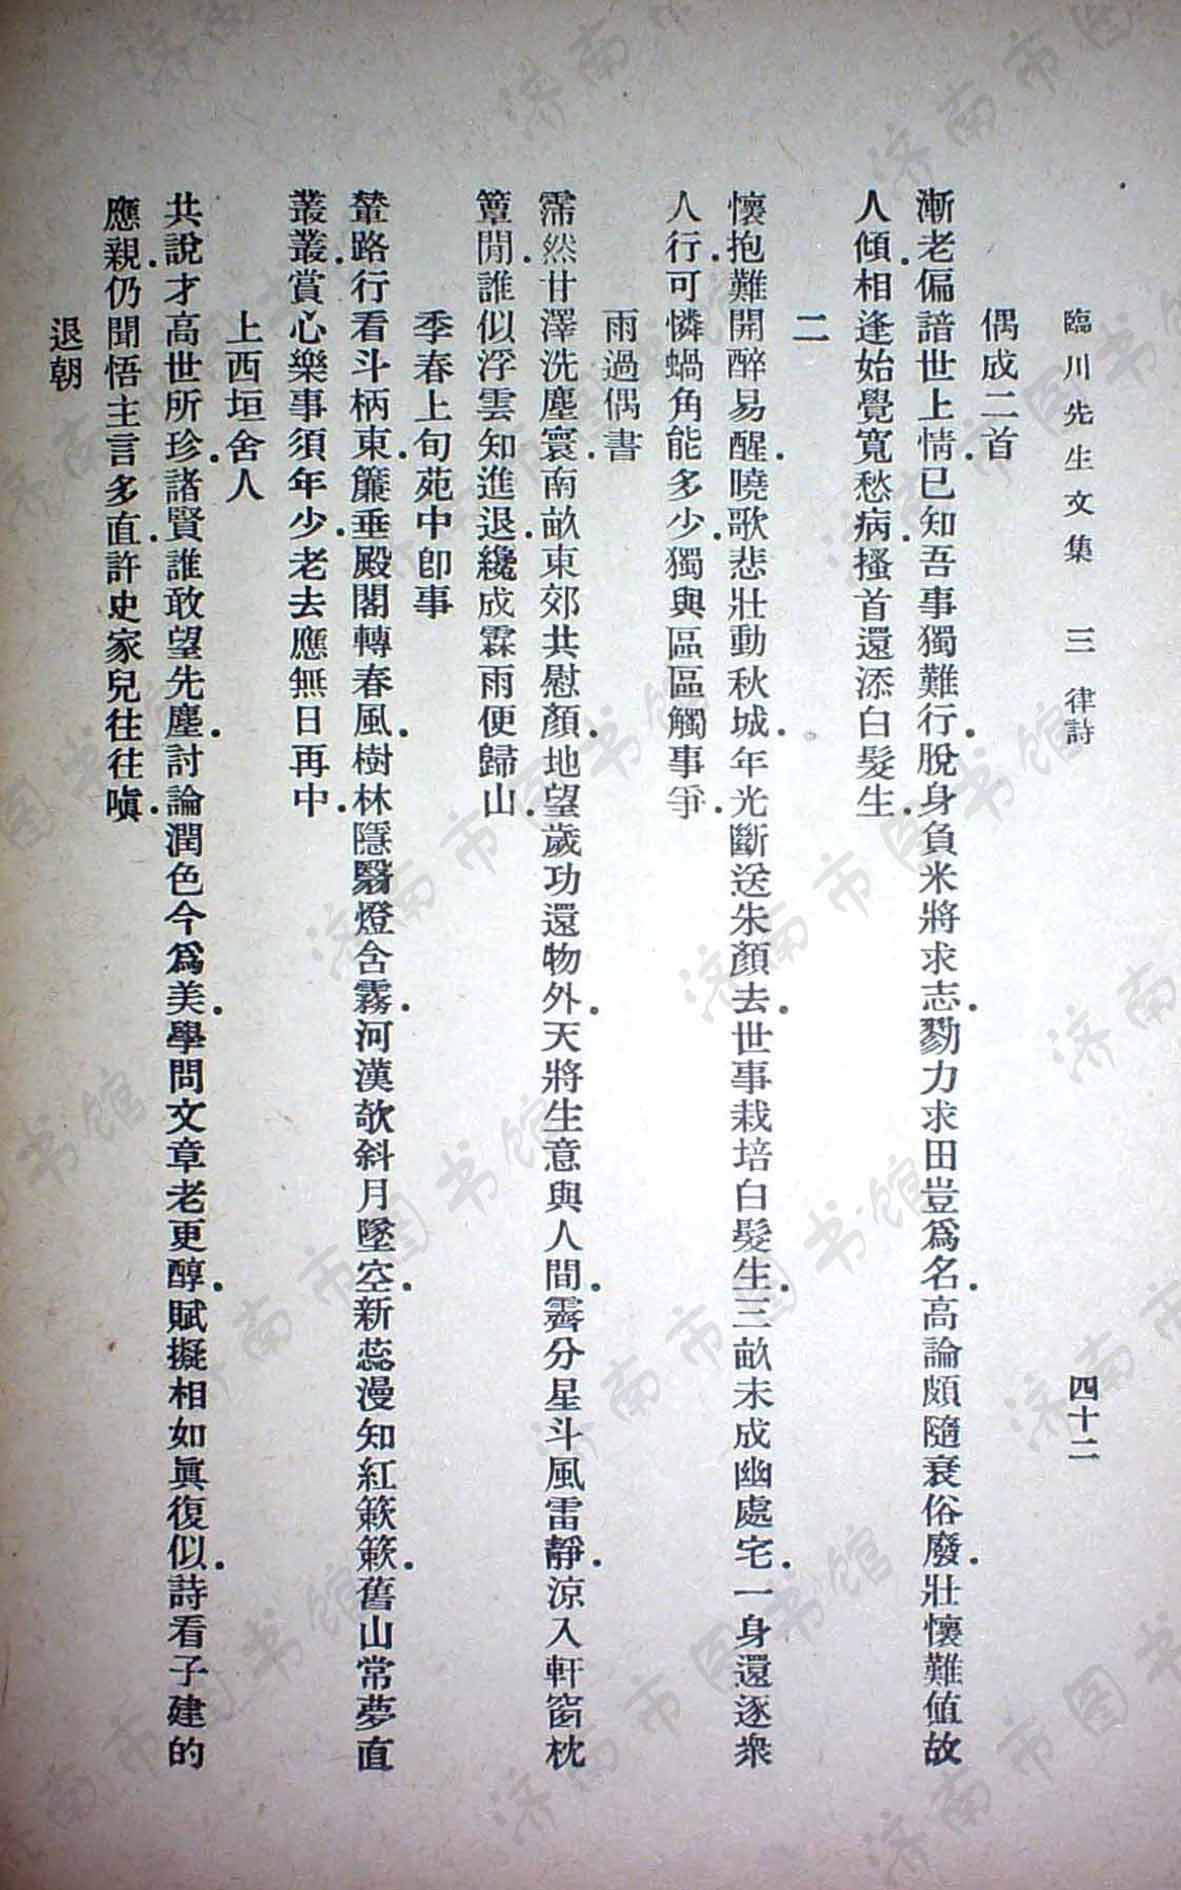 臨川先生文集　三　律詩　四十二
偶成二首
漸老偏諳世上情.已知吾事獨難行.脫身負米將求志.勠力求田豈爲名.高論頗隨衰俗廢.壯懷難値故
人傾.相逢始覺寬愁病.搔首還添白髮生.
二
懷抱難開醉易醒.曉歌悲壯動秋城.年光斷送朱顏去.世事栽培白髮生.三畝未成幽處宅.一身還逐衆
人行.可憐蝸角能多少.獨與區區觸事爭.
雨過偶書
霈然甘澤洗塵寰.南畝東郊共慰顏.地望歲功還物外.天將生意與人間.霽分星斗風雷靜.涼入軒窗枕
簟閒.誰似浮雲知進退.纔成霖雨便歸山.
季春上旬苑中卽事
輦路行看斗柄東.簾垂殿閣轉春風.樹林隱翳燈含霧.河漢欹斜月墜空.新蕊漫知紅簌簌.舊山常夢直
叢叢.賞心樂事須年少.老去應無日再中.
上西垣舍人
共說才高世所珍.諸賢誰敢望先塵.討論潤色今爲美.學問文章老更醇.賦擬相如眞復似.詩看子建的
應親.仍聞悟主言多直.許史家兒往往嗔.
退朝